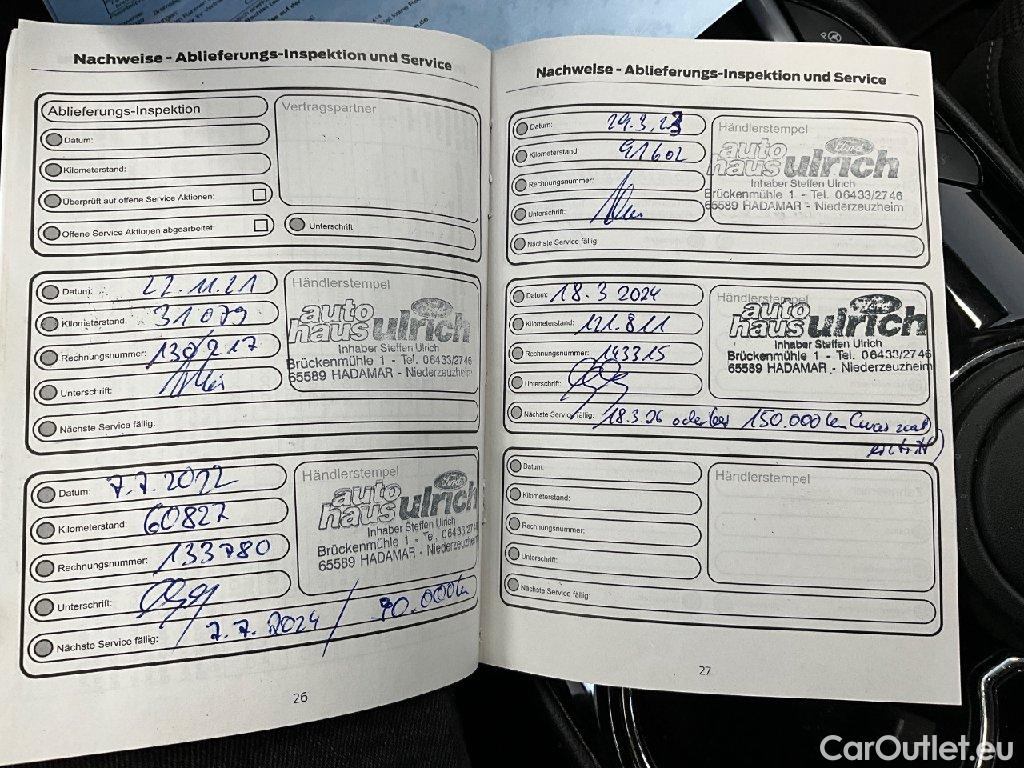 Nachweise - Ablieferungs-Inspektion und Service
Ablieferungs-Inspektion
Vertragspartner
Datum:
Kilometerstand:
Überprüft auf offene Service Aktionen:
Offene Service Aktionen abgearbeitet
Unterschrift
Datum: 22.11.21
Kilometerstand: 31079
Rechnungsnummer: 130217
Unterschrift:
Nächste Service fällig:
Händlerstempel
Ford
auto haus ulrich
Inhaber Steffen Ulrich
Brückenmühle 1 - Tel. 06433/2746
65589 HADAMAR - Niederzeuzheim
Datum: 7.7.2022
Kilometerstand: 60827
Rechnungsnummer: 133780
Unterschrift:
Nächste Service fällig: 7.7.2024 / 90.000km
Händlerstempel
Ford
auto haus ulrich
Inhaber Steffen Ulrich
Brückenmühle 1 - Tel. 06433/2746
65589 HADAMAR - Niederzeuzheim
26
Nachweise - Ablieferungs-Inspektion und Service
Datum: 29.3.23
Kilometerstand: 91602
Rechnungsnummer:
Unterschrift:
Nächste Service fällig
Händlerstempel
Ford
auto haus ulrich
Inhaber Steffen Ulrich
Brückenmühle 1 - Tel. 06433/2746
65589 HADAMAR - Niederzeuzheim
Datum: 18.3 2024
Kilometerstand: 121.811
Rechnungsnummer: 143315
Unterschrift:
Nächste Service fällig: 18.3.26 oder bei 150.000km (was zuerst
Händlerstempel
Ford
auto haus ulrich
Inhaber Steffen Ulrich
Brückenmühle 1 - Tel. 06433/2746
65589 HADAMAR - Niederzeuzheim
Datum:
Kilometerstand:
Rechnungsnummer:
Unterschrift:
Nächste Service fällig
Händlerstempel
27
CarOutlet.eu